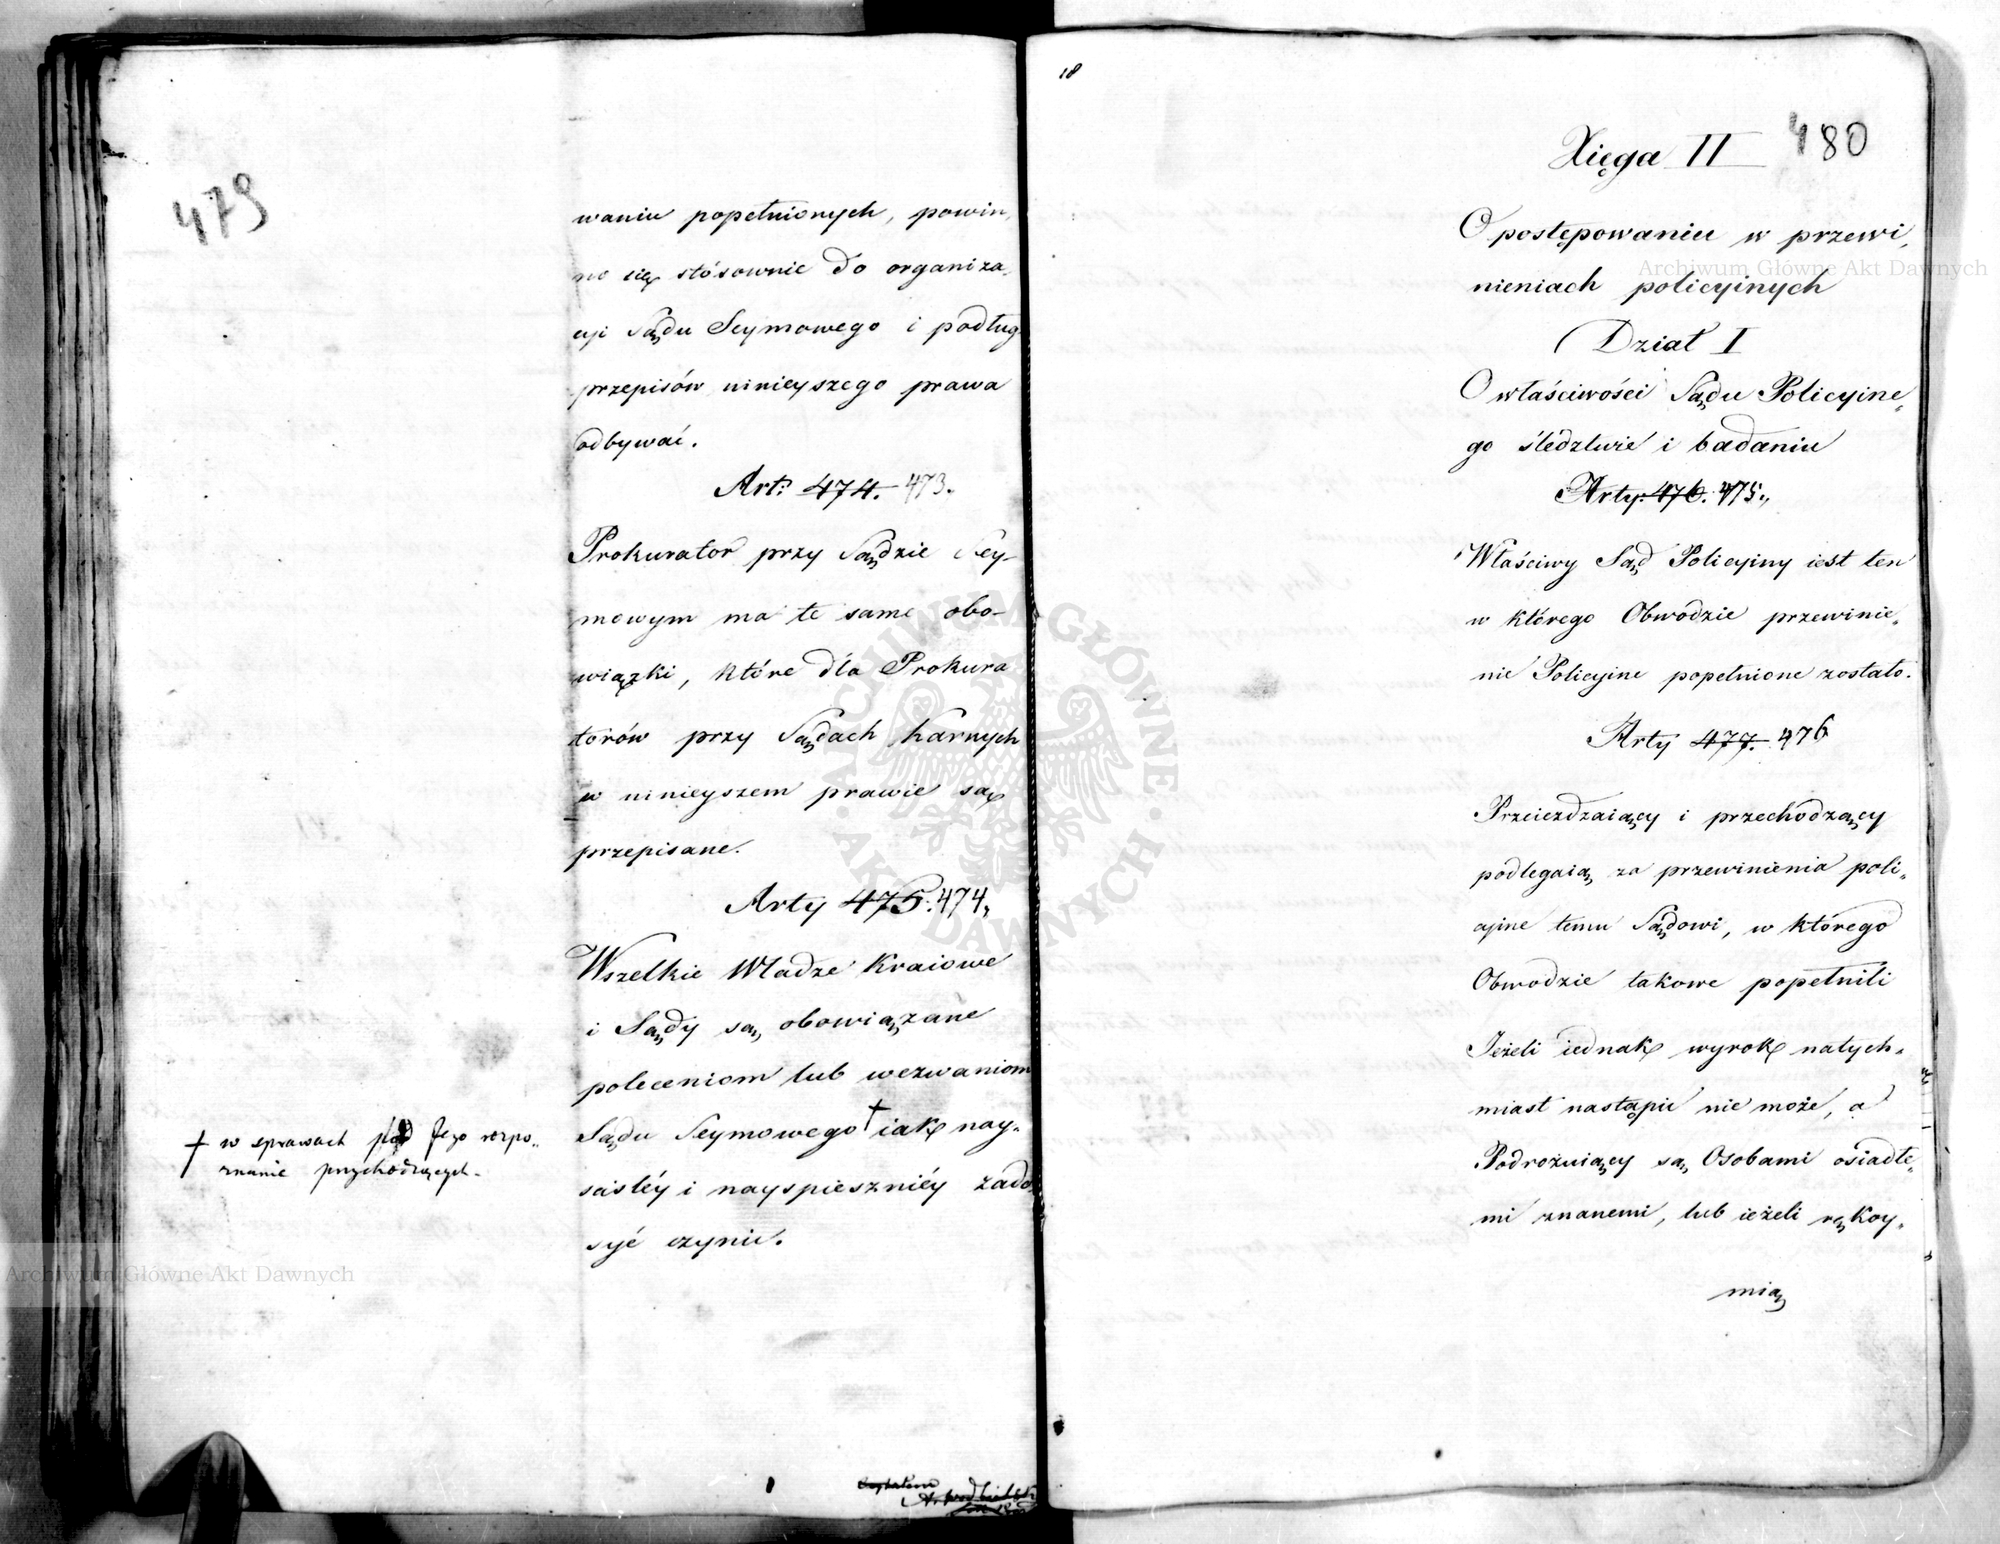 479
waniu popełnionych, powin„
no się stósownie do organiza„
cyi Sądu Seymowego i podług
przepisów ninieyszego prawa
odbywać.
Art: 474. 473.
Prokurator przy Sądzie Sey-
mowym ma te same obo-
wiązki, które dla Prokura
torów przy Sądach Karnych
w ninieyszem prawie są
przepisane.
Arty 475. 474,
Wszelkie Władze Kraiowe
i Sądy są obowiązane
poleceniom lub wezwaniom
Sądu Seymowego † iak nay„
ściśléy i nayspieszniéy zado
syć czynić.
† w sprawach pod Jego rozpo„
znanie przychodzących.
18
480
Xięga II
O postępowaniu w przewi„
nieniach policyinych
Dział I
O właściwości Sądu Policyine„
go śledztwie i badaniu
Arty. 476. 475.,
Właściwy Sąd Policyiny iest ten
w którego Obwodzie przewinie„
nie Policyine popełnione zostało.
Arty 477. 476
Przeieżdzaiący i przechodzący
podlegaią za przewinienia poli„
cyine temu Sądowi, w którego
Obwodzie takowe popełnili
Jeżeli iednak wyrok natych„
miast nastąpić nie może, a
Podrożuiący są Osobami osiadłe„
mi znanemi, lub ieżeli rękoy„
mią
Archiwum Główne Akt Dawnych
Archiwum Główne Akt Dawnych
ARCHIWUM GŁÓWNE · AKT DAWNYCH ·